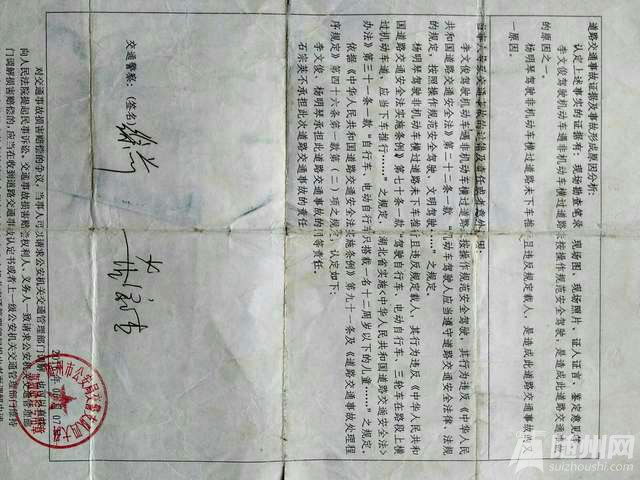 道路交通事故证据及事故形成原因分析:
认定上述事实的证据有:现场勘查笔录、现场图、现场照片、证人证言、鉴定意见等
李文俊驾驶机动车遇非机动车横过道路未按操作规范安全驾驶,是造成此道路交通事故
的原因之一。
杨明琴驾驶非机动车横过道路未下车推行且违反规定载人,是造成此道路交通事故的又
一原因。
当事人导致交通事故的过错及责任或者意外原因:
李文俊驾驶机动车遇非机动车横过道路未按操作规范安全驾驶,其行为违反《中华人民
共和国道路交通安全法》第二十二条一款“机动车驾驶人应当遵守道路交通安全法律、法规
的规定,按照操作规范安全驾驶、文明驾驶……”之规定。
杨明琴驾驶非机动车横过道路未下车推行且违反规定载人,其行为违反《中华人民共和
国道路交通安全法实施条例》第七十条一款“驾驶自行车、电动自行车、三轮车在路段上横
过机动车道,应当下车推行……”之规定、湖北省实施《中华人民共和国道路交通安全法》
办法》第三十一条一款“自行车、电动自行车只搭载一名十二周岁以下的儿童……”之规定。
依据《中华人民共和国道路交通安全法实施条例》第九十一条及《道路交通事故处理程
序规定》第四十六条第一款第(二)项之规定,认定如下:
李文俊、杨明琴承担此次道路交通事故的同等责任。
石宗英不承担此次道路交通事故的责任。
交通警察:(签名)
对交通事故损害赔偿的争议,当事人可以请求公安机关交通管理部门调解,
向人民法院提起民事诉讼。交通事故损害赔偿权利人、义务人一致请求公安机关交通管理部
门调解损害赔偿的,应当在收到道路交通事故认定书或者上一级公安机关交通管理部门
随州网
suizhoushi.com